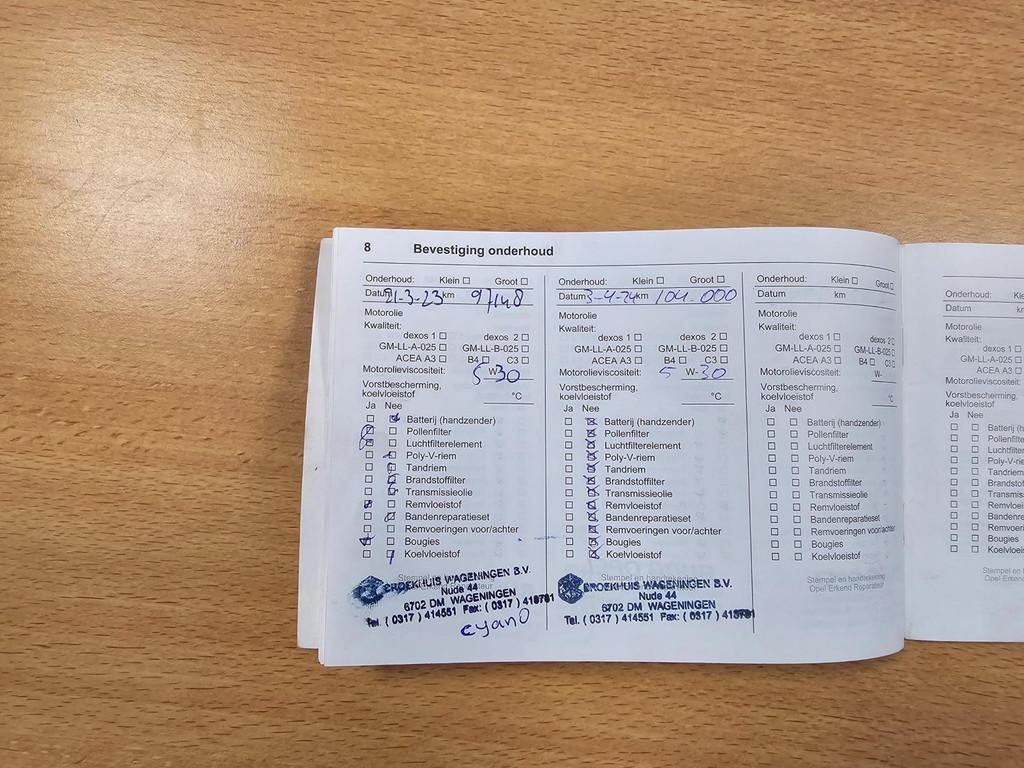 8 Bevestiging onderhoud
Onderhoud: Klein Groot
Datum 21-3-23 km 97148
Motorolie
Kwaliteit:
dexos 1 dexos 2
GM-LL-A-025 GM-LL-B-025
ACEA A3 B4 C3
Motorolieviscositeit: 5 W-30
Vorstbescherming,
koelvloeistof °C
Ja Nee
Batterij (handzender)
Pollenfilter
Luchtfilterelement
Poly-V-riem
Tandriem
Brandstoffilter
Transmissieolie
Remvloeistof
Bandenreparatieset
Remvoeringen voor/achter
Bougies
Koelvloeistof
BROEKHUIS WAGENINGEN B.V.
Nude 44
6702 DM WAGENINGEN
Tel. ( 0317 ) 414551 Fax: ( 0317 ) 418791
cyano
Onderhoud: Klein Groot
Datum 3-4-24 km 104.000
Motorolie
Kwaliteit:
dexos 1 dexos 2
GM-LL-A-025 GM-LL-B-025
ACEA A3 B4 C3
Motorolieviscositeit: 5 W-30
Vorstbescherming,
koelvloeistof °C
Ja Nee
Batterij (handzender)
Pollenfilter
Luchtfilterelement
Poly-V-riem
Tandriem
Brandstoffilter
Transmissieolie
Remvloeistof
Bandenreparatieset
Remvoeringen voor/achter
Bougies
Koelvloeistof
Stempel en handtekening
BROEKHUIS WAGENINGEN B.V.
Nude 44
6702 DM WAGENINGEN
Tel. ( 0317 ) 414551 Fax: ( 0317 ) 418791
Onderhoud: Klein Groot
Datum km
Motorolie
Kwaliteit:
dexos 1 dexos 2
GM-LL-A-025 GM-LL-B-025
ACEA A3 B4 C3
Motorolieviscositeit: W-
Vorstbescherming,
koelvloeistof °C
Ja Nee
Batterij (handzender)
Pollenfilter
Luchtfilterelement
Poly-V-riem
Tandriem
Brandstoffilter
Transmissieolie
Remvloeistof
Bandenreparatieset
Remvoeringen voor/achter
Bougies
Koelvloeistof
Stempel en handtekening
Opel Erkend Reparateur
Onderhoud: Kle
Datum km
Motorolie
Kwaliteit:
dexos 1
GM-LL-A-025
ACEA A3
Motorolieviscositeit:
Vorstbescherming,
koelvloeistof
Ja Nee
Batterij (h
Pollenfilte
Luchtfilter
Poly-V-ri
Tandriem
Brandstof
Transmiss
Remvloeis
Bandenre
Remvoer
Bougies
Koelvloeis
Stempel en h
Opel Erken